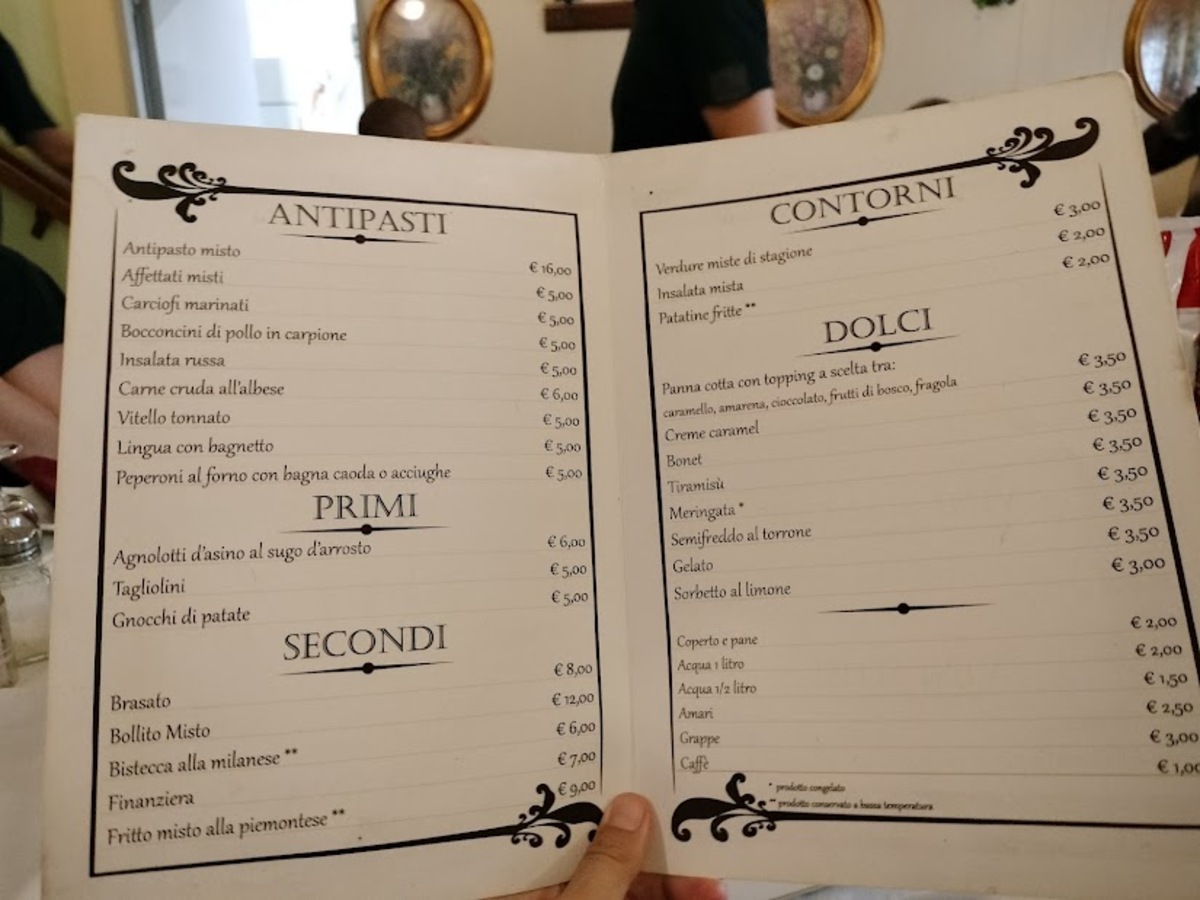 ANTIPASTI
Antipasto misto € 16,00
Affettati misti € 5,00
Carciofi marinati € 5,00
Bocconcini di pollo in carpione € 5,00
Insalata russa € 5,00
Carne cruda all'albese € 6,00
Vitello tonnato € 5,00
Lingua con bagnetto € 5,00
Peperoni al forno con bagna caoda o acciughe € 5,00
PRIMI
Agnolotti d'asino al sugo d'arrosto € 6,00
Tagliolini € 5,00
Gnocchi di patate € 5,00
SECONDI
Brasato € 8,00
Bollito Misto € 12,00
Bistecca alla milanese ** € 6,00
Finanziera € 7,00
Fritto misto alla piemontese ** € 9,00
CONTORNI
Verdure miste di stagione € 3,00
Insalata mista € 2,00
Patatine fritte ** € 2,00
DOLCI
Panna cotta con topping a scelta tra: € 3,50
caramello, amarena, cioccolato, frutti di bosco, fragola
Creme caramel € 3,50
Bonet € 3,50
Tiramisù € 3,50
Meringata * € 3,50
Semifreddo al torrone € 3,50
Gelato € 3,50
Sorbetto al limone € 3,00
Coperto e pane € 2,00
Acqua 1 litro € 2,00
Acqua 1/2 litro € 1,50
Amari € 2,50
Grappe € 3,00
Caffè € 1,00
* prodotto congelato
** prodotto conservato a bassa temperatura